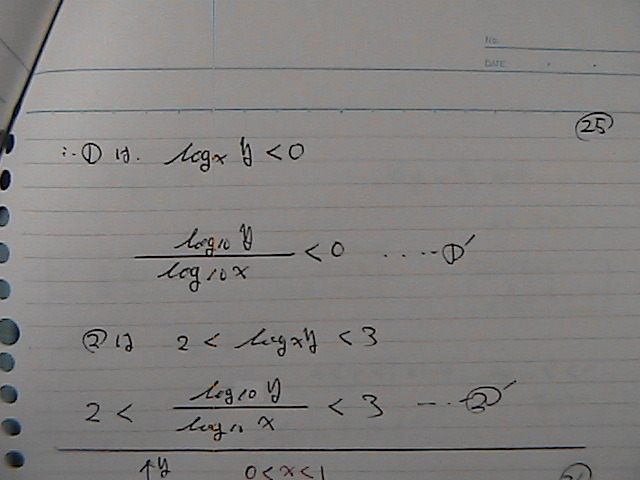 No.
DATE
㉕
∴ ① は. log_x y < 0
log₁₀ y / log₁₀ x < 0 ‥‥‥ ①′
② は 2 < log_x y < 3
2 < log₁₀ y / log₁₀ x < 3 ‥‥ ②′
↑y 0 < x < 1